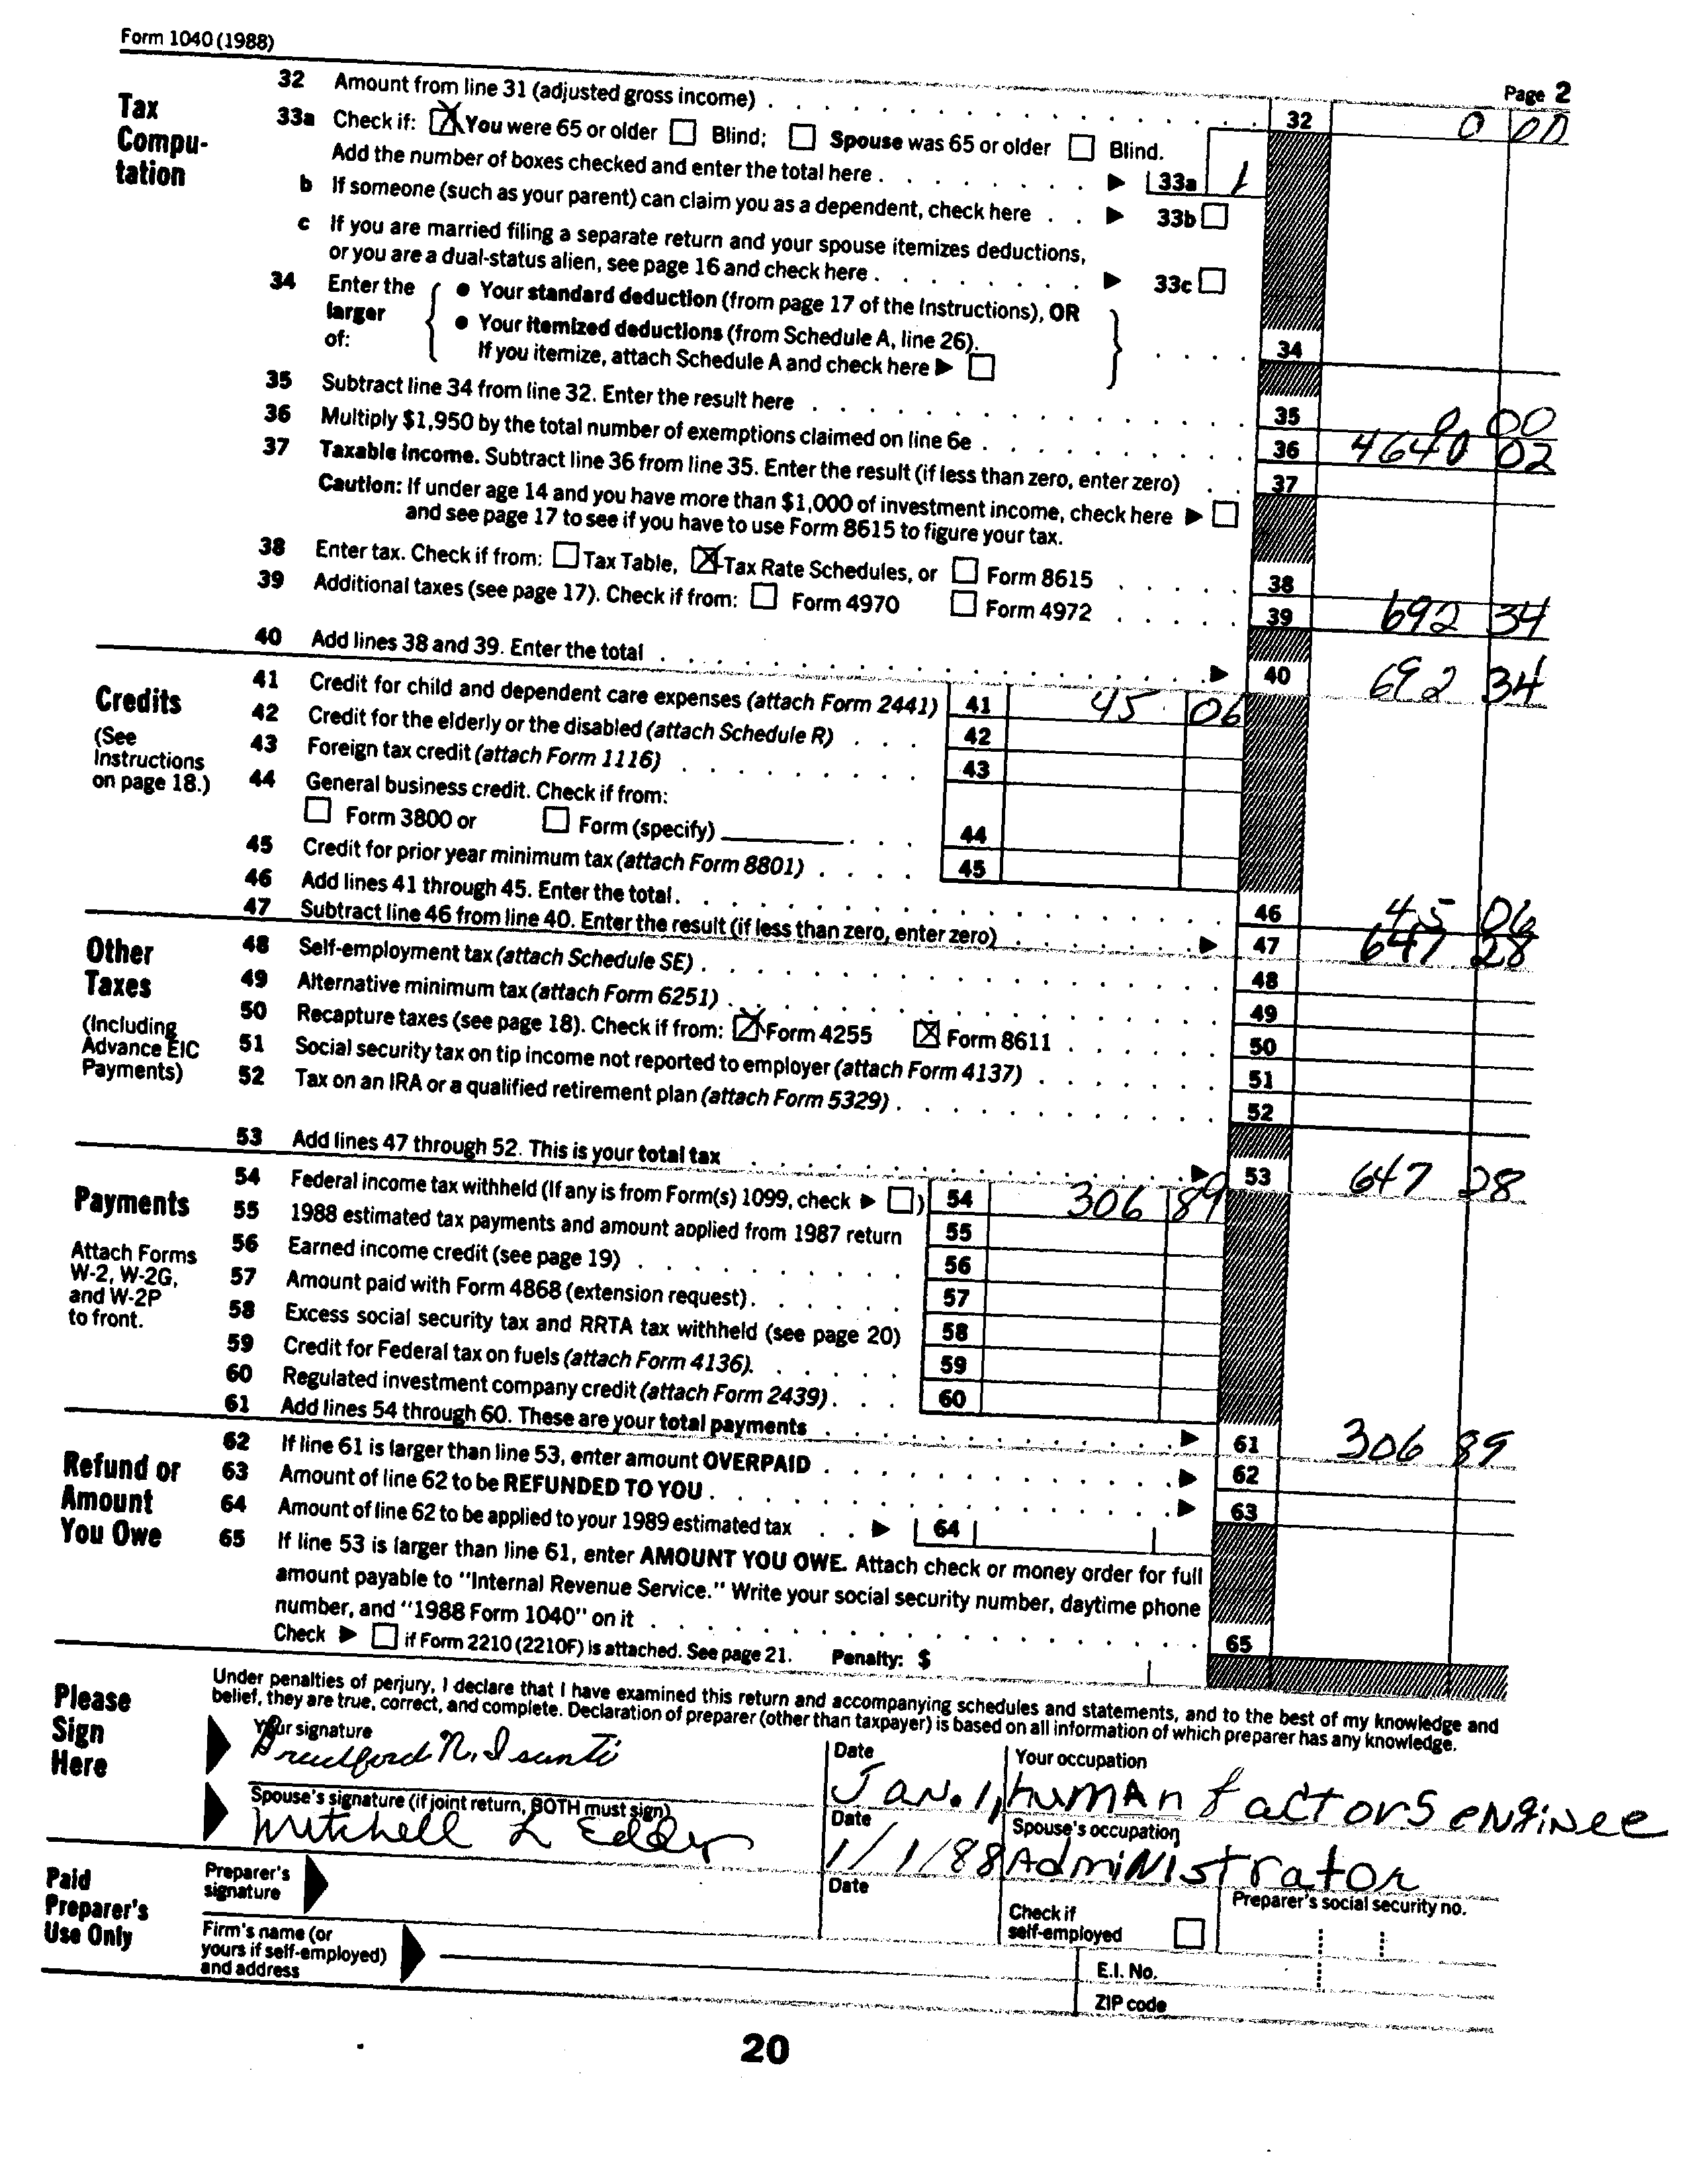 Form 1040 (1988)
Page 2
Tax Compu-tation
32 Amount from line 31 (adjusted gross income) . . . 32 0 00
33a Check if: [X] You were 65 or older [ ] Blind; [ ] Spouse was 65 or older [ ] Blind.
Add the number of boxes checked and enter the total here . . . ▶ 33a 1
b If someone (such as your parent) can claim you as a dependent, check here . . ▶ 33b [ ]
c If you are married filing a separate return and your spouse itemizes deductions,
or you are a dual-status alien, see page 16 and check here . . . ▶ 33c [ ]
34 Enter the larger of: { • Your standard deduction (from page 17 of the Instructions), OR
• Your itemized deductions (from Schedule A, line 26).
If you itemize, attach Schedule A and check here ▶ [ ] } . . . . 34
35 Subtract line 34 from line 32. Enter the result here . . . 35 0 00
36 Multiply $1,950 by the total number of exemptions claimed on line 6e . . . 36 4640 02
37 Taxable income. Subtract line 36 from line 35. Enter the result (if less than zero, enter zero) . . 37
Caution: If under age 14 and you have more than $1,000 of investment income, check here ▶ [ ]
and see page 17 to see if you have to use Form 8615 to figure your tax.
38 Enter tax. Check if from: [ ] Tax Table, [X] Tax Rate Schedules, or [ ] Form 8615 . . . 38
39 Additional taxes (see page 17). Check if from: [ ] Form 4970 [ ] Form 4972 . . . 39 692 34
40 Add lines 38 and 39. Enter the total . . . ▶ 40 692 34
Credits
(See Instructions on page 18.)
41 Credit for child and dependent care expenses (attach Form 2441) 41 45 06
42 Credit for the elderly or the disabled (attach Schedule R) . . . 42
43 Foreign tax credit (attach Form 1116) . . . 43
44 General business credit. Check if from:
[ ] Form 3800 or [ ] Form (specify) ________ . . . 44
45 Credit for prior year minimum tax (attach Form 8801) . . . . 45
46 Add lines 41 through 45. Enter the total . . . 46 45 06
47 Subtract line 46 from line 40. Enter the result (if less than zero, enter zero) . . . ▶ 47 647 28
Other Taxes
(Including Advance EIC Payments)
48 Self-employment tax (attach Schedule SE) . . . 48
49 Alternative minimum tax (attach Form 6251) . . . 49
50 Recapture taxes (see page 18). Check if from: [X] Form 4255 [X] Form 8611 . . . 50
51 Social security tax on tip income not reported to employer (attach Form 4137) . . . 51
52 Tax on an IRA or a qualified retirement plan (attach Form 5329) . . . 52
53 Add lines 47 through 52. This is your total tax . . . ▶ 53 647 28
Payments
Attach Forms W-2, W-2G, and W-2P to front.
54 Federal income tax withheld (If any is from Form(s) 1099, check ▶ [ ]) 54 306 89
55 1988 estimated tax payments and amount applied from 1987 return 55
56 Earned income credit (see page 19) . . . 56
57 Amount paid with Form 4868 (extension request) . . . 57
58 Excess social security tax and RRTA tax withheld (see page 20) 58
59 Credit for Federal tax on fuels (attach Form 4136) . . . 59
60 Regulated investment company credit (attach Form 2439) . . . 60
61 Add lines 54 through 60. These are your total payments . . . ▶ 61 306 89
Refund or Amount You Owe
62 If line 61 is larger than line 53, enter amount OVERPAID . . . ▶ 62
63 Amount of line 62 to be REFUNDED TO YOU . . . ▶ 63
64 Amount of line 62 to be applied to your 1989 estimated tax . . ▶ 64
65 If line 53 is larger than line 61, enter AMOUNT YOU OWE. Attach check or money order for full
amount payable to "Internal Revenue Service." Write your social security number, daytime phone
number, and "1988 Form 1040" on it . . . 65
Check ▶ [ ] if Form 2210 (2210F) is attached. See page 21. Penalty: $
Please Sign Here
Under penalties of perjury, I declare that I have examined this return and accompanying schedules and statements, and to the best of my knowledge and
belief, they are true, correct, and complete. Declaration of preparer (other than taxpayer) is based on all information of which preparer has any knowledge.
Your signature Bradford N. Isanti Date Jan. 1, Your occupation human factors enginee
Spouse's signature (if joint return, BOTH must sign) Mitchell L Edder Date 1/1/88 Spouse's occupation Administrator
Paid Preparer's Use Only
Preparer's signature Date Check if self-employed [ ] Preparer's social security no.
Firm's name (or yours if self-employed) and address
E.I. No.
ZIP code
20